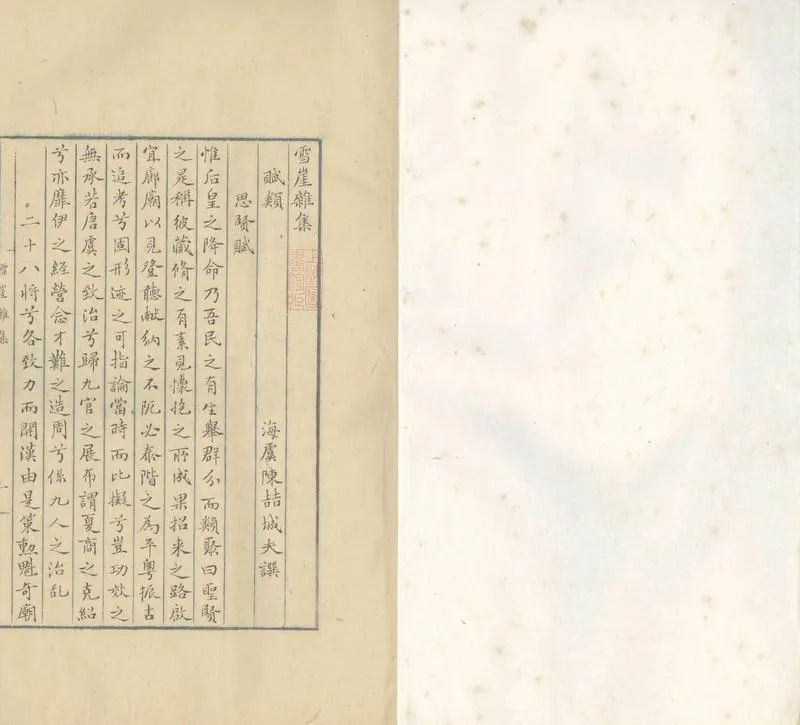 雪崖雜集
賦類
海虞陳喆城夫譔
思賢賦
惟后皇之降命乃吾民之有生舉群分而類聚曰聖賢
之是稱彼藏脩之有素見懷抱之所成果招来之路啟
宜廊廟以見登聽献納之不阨必泰階之為平粤振古
而追考兮固形迹之可指論當時而比擬兮豈功效之
無承若唐虞之致治兮歸九官之展布謂夏商之克紹
兮亦靡伊之經營念才難之造周兮係九人之治乱
二十八将兮各致力而開漢由是策勲魁奇廟
雪崖雜集